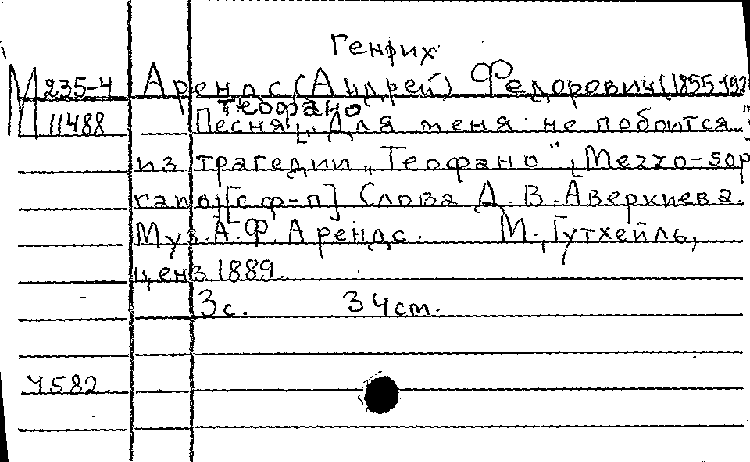 Генрих
М 235-4 Арендс (Андрей) Федорович (1855-192
Теофано
11488 Песня „Для меня не поборотся...
из трагедии „Теофано". Mezzo-sop
rano [с ф-п] Слова Д. В. Аверкиева.
Муз. А. Ф. Арендс. М., Гутхейль,
ценз. 1889.
3 с. 34 ст.
Ч582